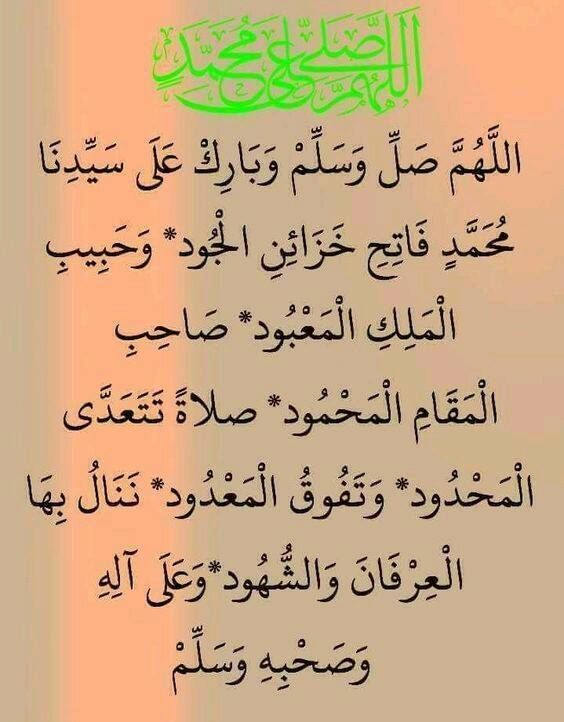 اللهم صلى على محمد
اللَّهُمَّ صَلِّ وَسَلِّمْ وَبَارِكْ عَلَى سَيِّدِنَا
مُحَمَّدٍ فَاتِحِ خَزَائِنِ الْجُود* وَحَبِيبِ
الْمَلِكِ الْمَعْبُود* صَاحِبِ
الْمَقَامِ الْمَحْمُود* صلاةً تَتَعَدَّى
الْمَحْدُود* وَتَفُوقُ الْمَعْدُود* نَنَالُ بِهَا
الْعِرْفَانَ وَالشُّهُود*وَعَلَى آلِهِ
وَصَحْبِهِ وَسَلِّمْ